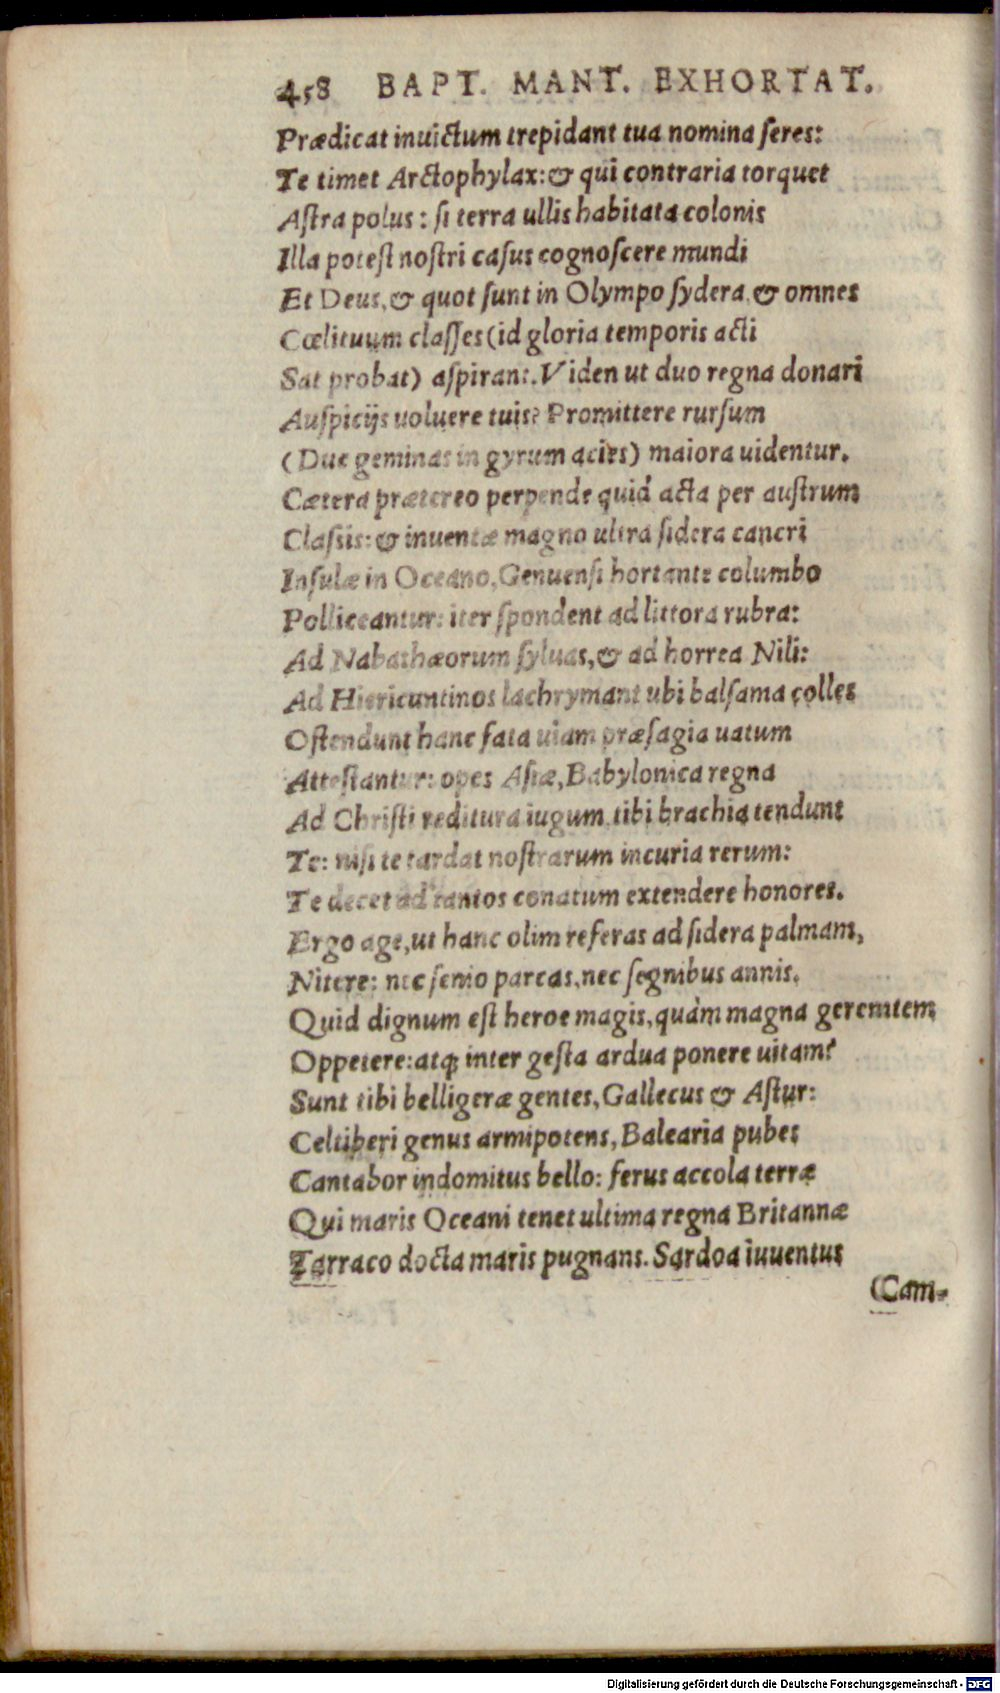 458 BAPT. MANT. EXHORTAT.
Prædicat inuictum trepidant tua nomina ſeres:
Te timet Arctophylax: & qui contraria torquet
Aſtra polus: ſi terra ullis habitata colonis
Illa poteſt noſtri caſus cognoſcere mundi
Et Deus, & quot ſunt in Olympo ſydera, & omnes
Cœlituum claſſes (id gloria temporis acti
Sat probat) aſpirant. Viden ut duo regna donari
Auſpicijs uoluere tuis? Promittere rurſum
(Duc geminas in gyrum acies) maiora uidentur.
Cætera prætereo perpende quid acta per auſtrum
Claſsis: & inuentæ magno ultra ſidera cancri
Inſulæ in Oceano, Genuenſi hortante columbo
Polliceantur: iter ſpondent ad littora rubra:
Ad Nabathæorum ſyluas, & ad horrea Nili:
Ad Hiericuntinos lachrymant ubi balſama colles
Oſtendunt hanc fata uiam præſagia uatum
Atteſtantur: opes Aſiæ, Babylonica regna
Ad Chriſti reditura iugum tibi brachia tendunt
Te: niſi te tardat noſtrarum incuria rerum:
Te decet ad tantos conatum extendere honores.
Ergo age, ut hanc olim referas ad ſidera palmam,
Nitere: nec ſenio parcas, nec ſegnibus annis.
Quid dignum eſt heroe magis, quàm magna gerentem
Oppetere: atq; inter geſta ardua ponere uitam?
Sunt tibi belligeræ gentes, Gallecus & Aſtur:
Celtiberi genus armipotens, Balearia pubes
Cantabor indomitus bello: ferus accola terræ
Qui maris Oceani tenet ultima regna Britannæ
Tarraco docta maris pugnans. Sardoa iuuentus
(Cam-
Digitalisierung gefördert durch die Deutsche Forschungsgemeinschaft - DFG